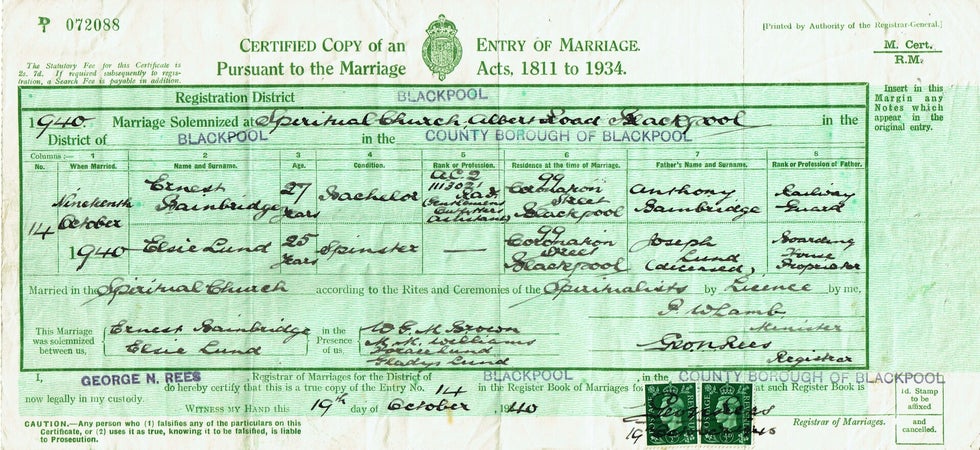 P 072088
[Printed by Authority of the Registrar-General.]
CERTIFIED COPY OF AN ENTRY OF MARRIAGE.
PURSUANT TO THE MARRIAGE ACTS, 1811 TO 1934.
M. Cert.
R.M.
The Statutory Fee for this Certificate is
2s. 7d. If required subsequently to regis-
tration, a Search Fee is payable in addition.
Insert in this
Margin any
Notes which
appear in the
original entry.
Registration District BLACKPOOL
1940. Marriage Solemnized at Spiritual Church Albert Road Blackpool in the
District of BLACKPOOL in the COUNTY BOROUGH OF BLACKPOOL
Columns :— 1 2 3 4 5 6 7 8
No. When Married. Name and Surname. Age. Condition. Rank or Profession. Residence at the time of Marriage. Father's Name and Surname. Rank or Profession of Father.
14 Nineteenth October 1940
Ernest Bainbridge 27 years Bachelor AC2 R.A.F. Gentlemens Outfitters Assistant 99 Coronation Street Blackpool Anthony Bainbridge Railway Guard
Elsie Lund 25 years Spinster — 99 Coronation Street Blackpool Joseph Lund (deceased) Boarding House Proprietor
Married in the Spiritual Church according to the Rites and Ceremonies of the Spiritualists by Licence by me,
This Marriage
was solemnized
between us,
Ernest Bainbridge
Elsie Lund
in the
Presence
of us,
W. G. M. Brown
M. M. Williams
Grace Lund
Gladys Lund
P W Lamb
Minister
Geo N Rees
Registrar
I, GEORGE N. REES, Registrar of Marriages for the District of BLACKPOOL, in the COUNTY BOROUGH OF BLACKPOOL
do hereby certify that this is a true copy of the Entry No. 14 in the Register Book of Marriages for at such Register Book is
now legally in my custody.
WITNESS MY HAND this 19th day of October, 1940
Registrar of Marriages.
1d. Stamp
to be
affixed
and
cancelled.
CAUTION.—Any person who (1) falsifies any of the particulars on this
Certificate, or (2) uses it as true, knowing it to be falsified, is liable
to Prosecution.